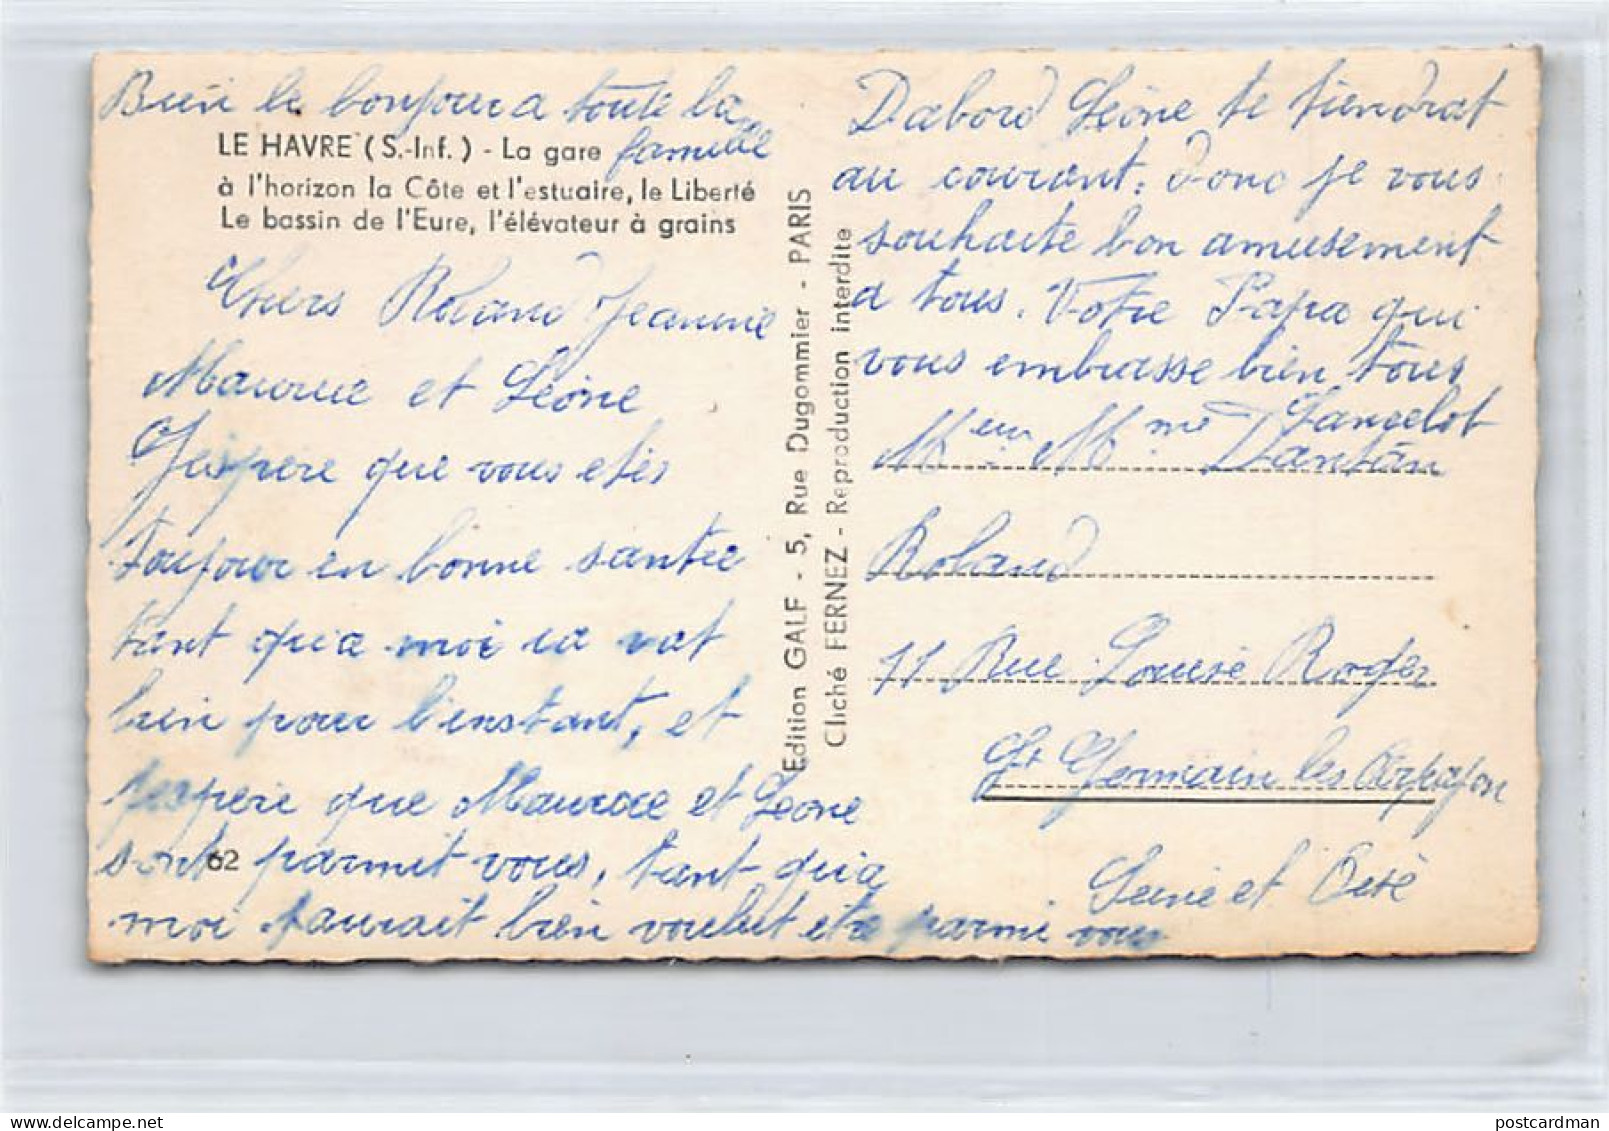 Bien le bonjour a toute la
famille
LE HAVRE (S.-Inf.) - La gare
à l'horizon la Côte et l'estuaire, le Liberté
Le bassin de l'Eure, l'élévateur à grains
Chers Roland Jeannie
Maurice et Léone
J'espère que vous etes
toujour en bonne santée
tant qu'a moi ca vat
bien pour l'instant, et
jespere que Maurice et Leone
sont parmit vous, tant qu'a
moi jaurait bien voulut etre parmi vous
62
Edition GALF - 5, Rue Dugommier - PARIS
Cliché FERNEZ - Reproduction interdite
Dabord Léone te tiendrat
au courant. donc je vous
souhaite bon amusement
a tous. Votre Papa qui
vous embrasse bien tous
Lancelot
Meur Mme Dantan
Roland
11 Rue Louise Roger
St Germain les Arpajon
Seine et Oise
postcardman.com